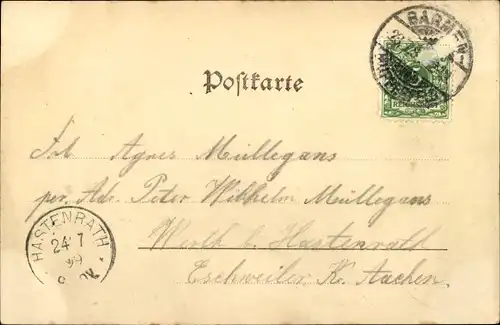 BARMEN
Postkarte
REICHSPOST
Frl. Agnes Müllegans
per. Adr. Peter Wilhelm Müllegans
Werth b. Hastenrath
Eschweiler K. Aachen.
HASTENRATH
24 7
99